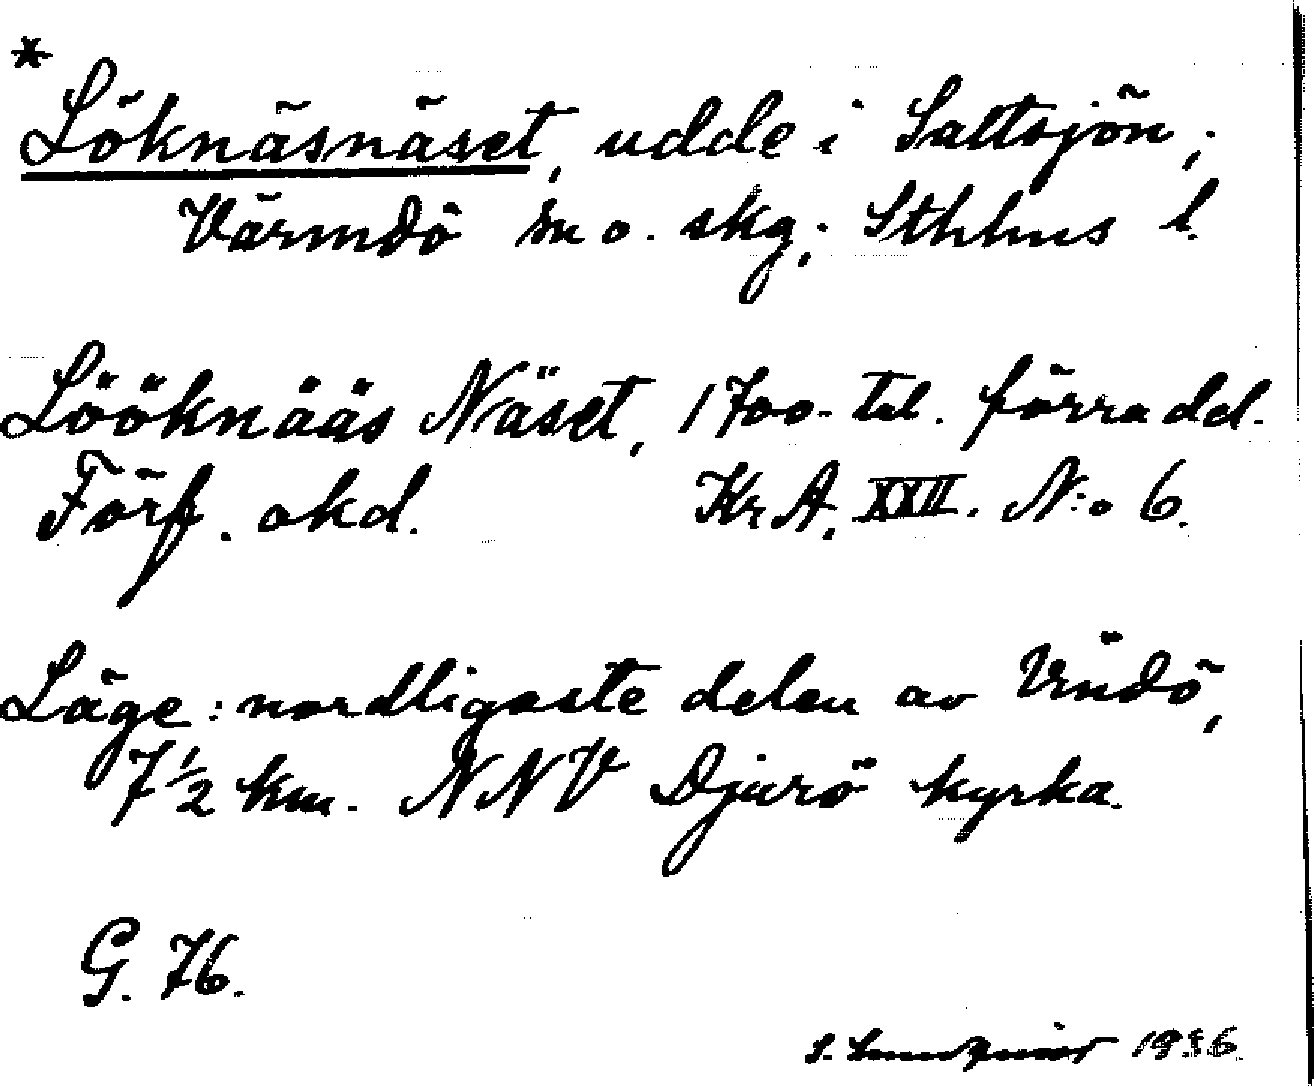 * Löknäsnäset, udde i Saltsjön,;
Värmdö sn o. skg.; Sthlms l.
Lööknääs Näset, 1700-tal. förra del.
Förf. okd. KrA. XXII. N:o 6.
Läge: nordligaste delen av Vindö,
7 1/2 km. NNV Djurö kyrka.
G. 76.
S. Lundqvist 1936.